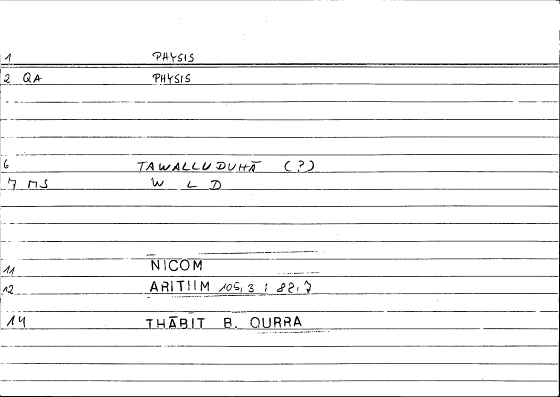 1 PHYSIS
2 QA PHYSIS
6 TAWALLUDUHĀ (?)
7 MS W L D
11 NICOM
12 ARITIIM 105,3 ; 82,7
14 THĀBIT B. QURRA